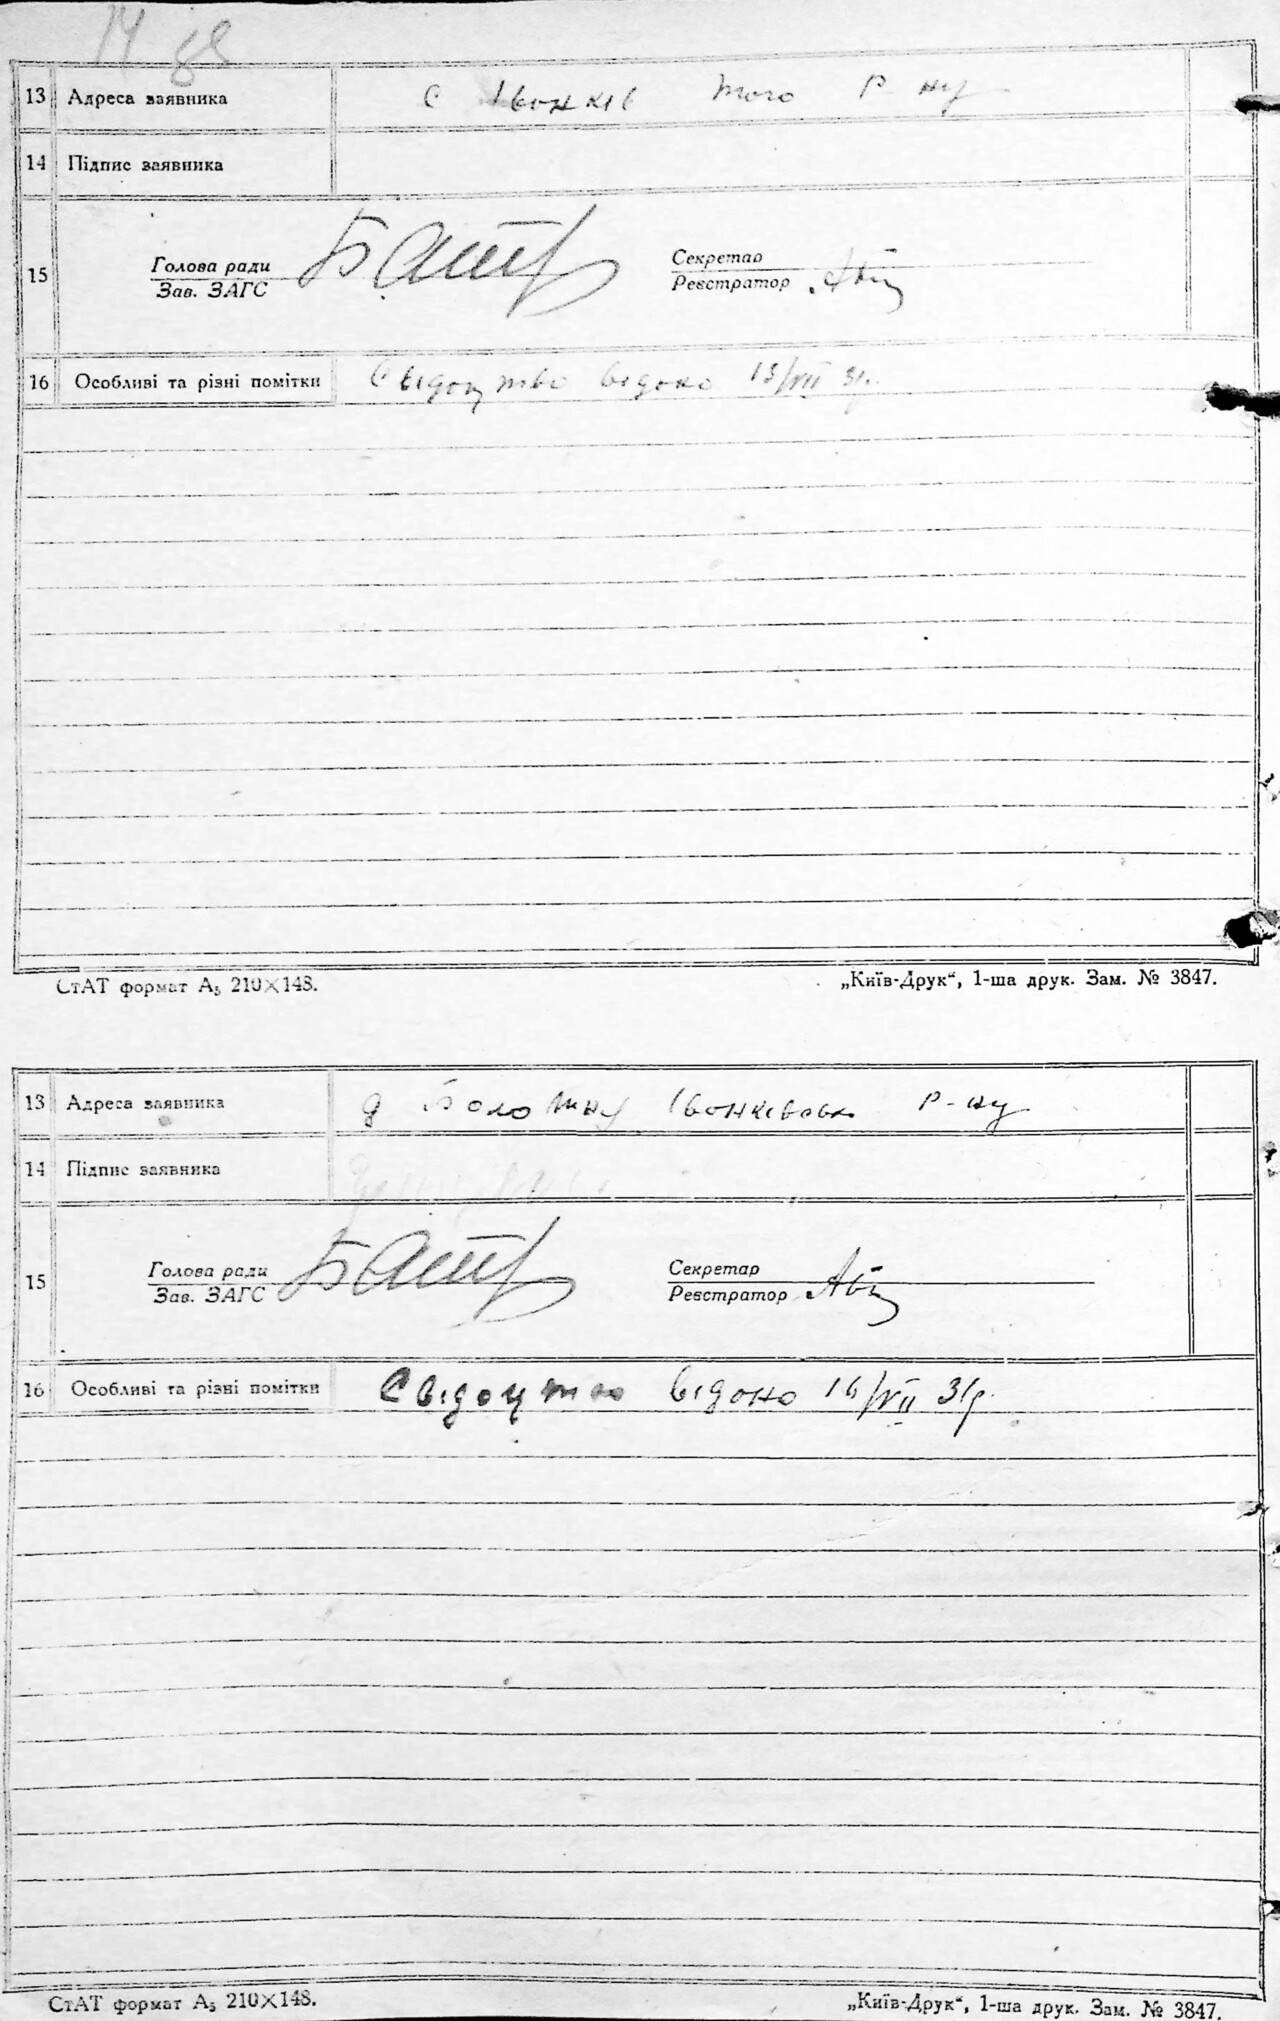 14 зв
13 Адреса заявника с Івонків того р ну
14 Підпис заявника
15 Голова ради Секретар
Зав. ЗАГС Реєстратор
16 Особливі та різні помітки Свідоцтво видоно 13/VII 31р.
СтАТ формат А₅ 210×148. „Київ-Друк“, 1-ша друк. Зам. № 3847.
13 Адреса заявника д Болотну Івонківськ р-ну
14 Підпис заявника
15 Голова ради Секретар
Зав. ЗАГС Реєстратор
16 Особливі та різні помітки Свідоцтво відоно 16/VII 31р.
СтАТ формат А₅ 210×148. „Київ-Друк“, 1-ша друк. Зам. № 3847.